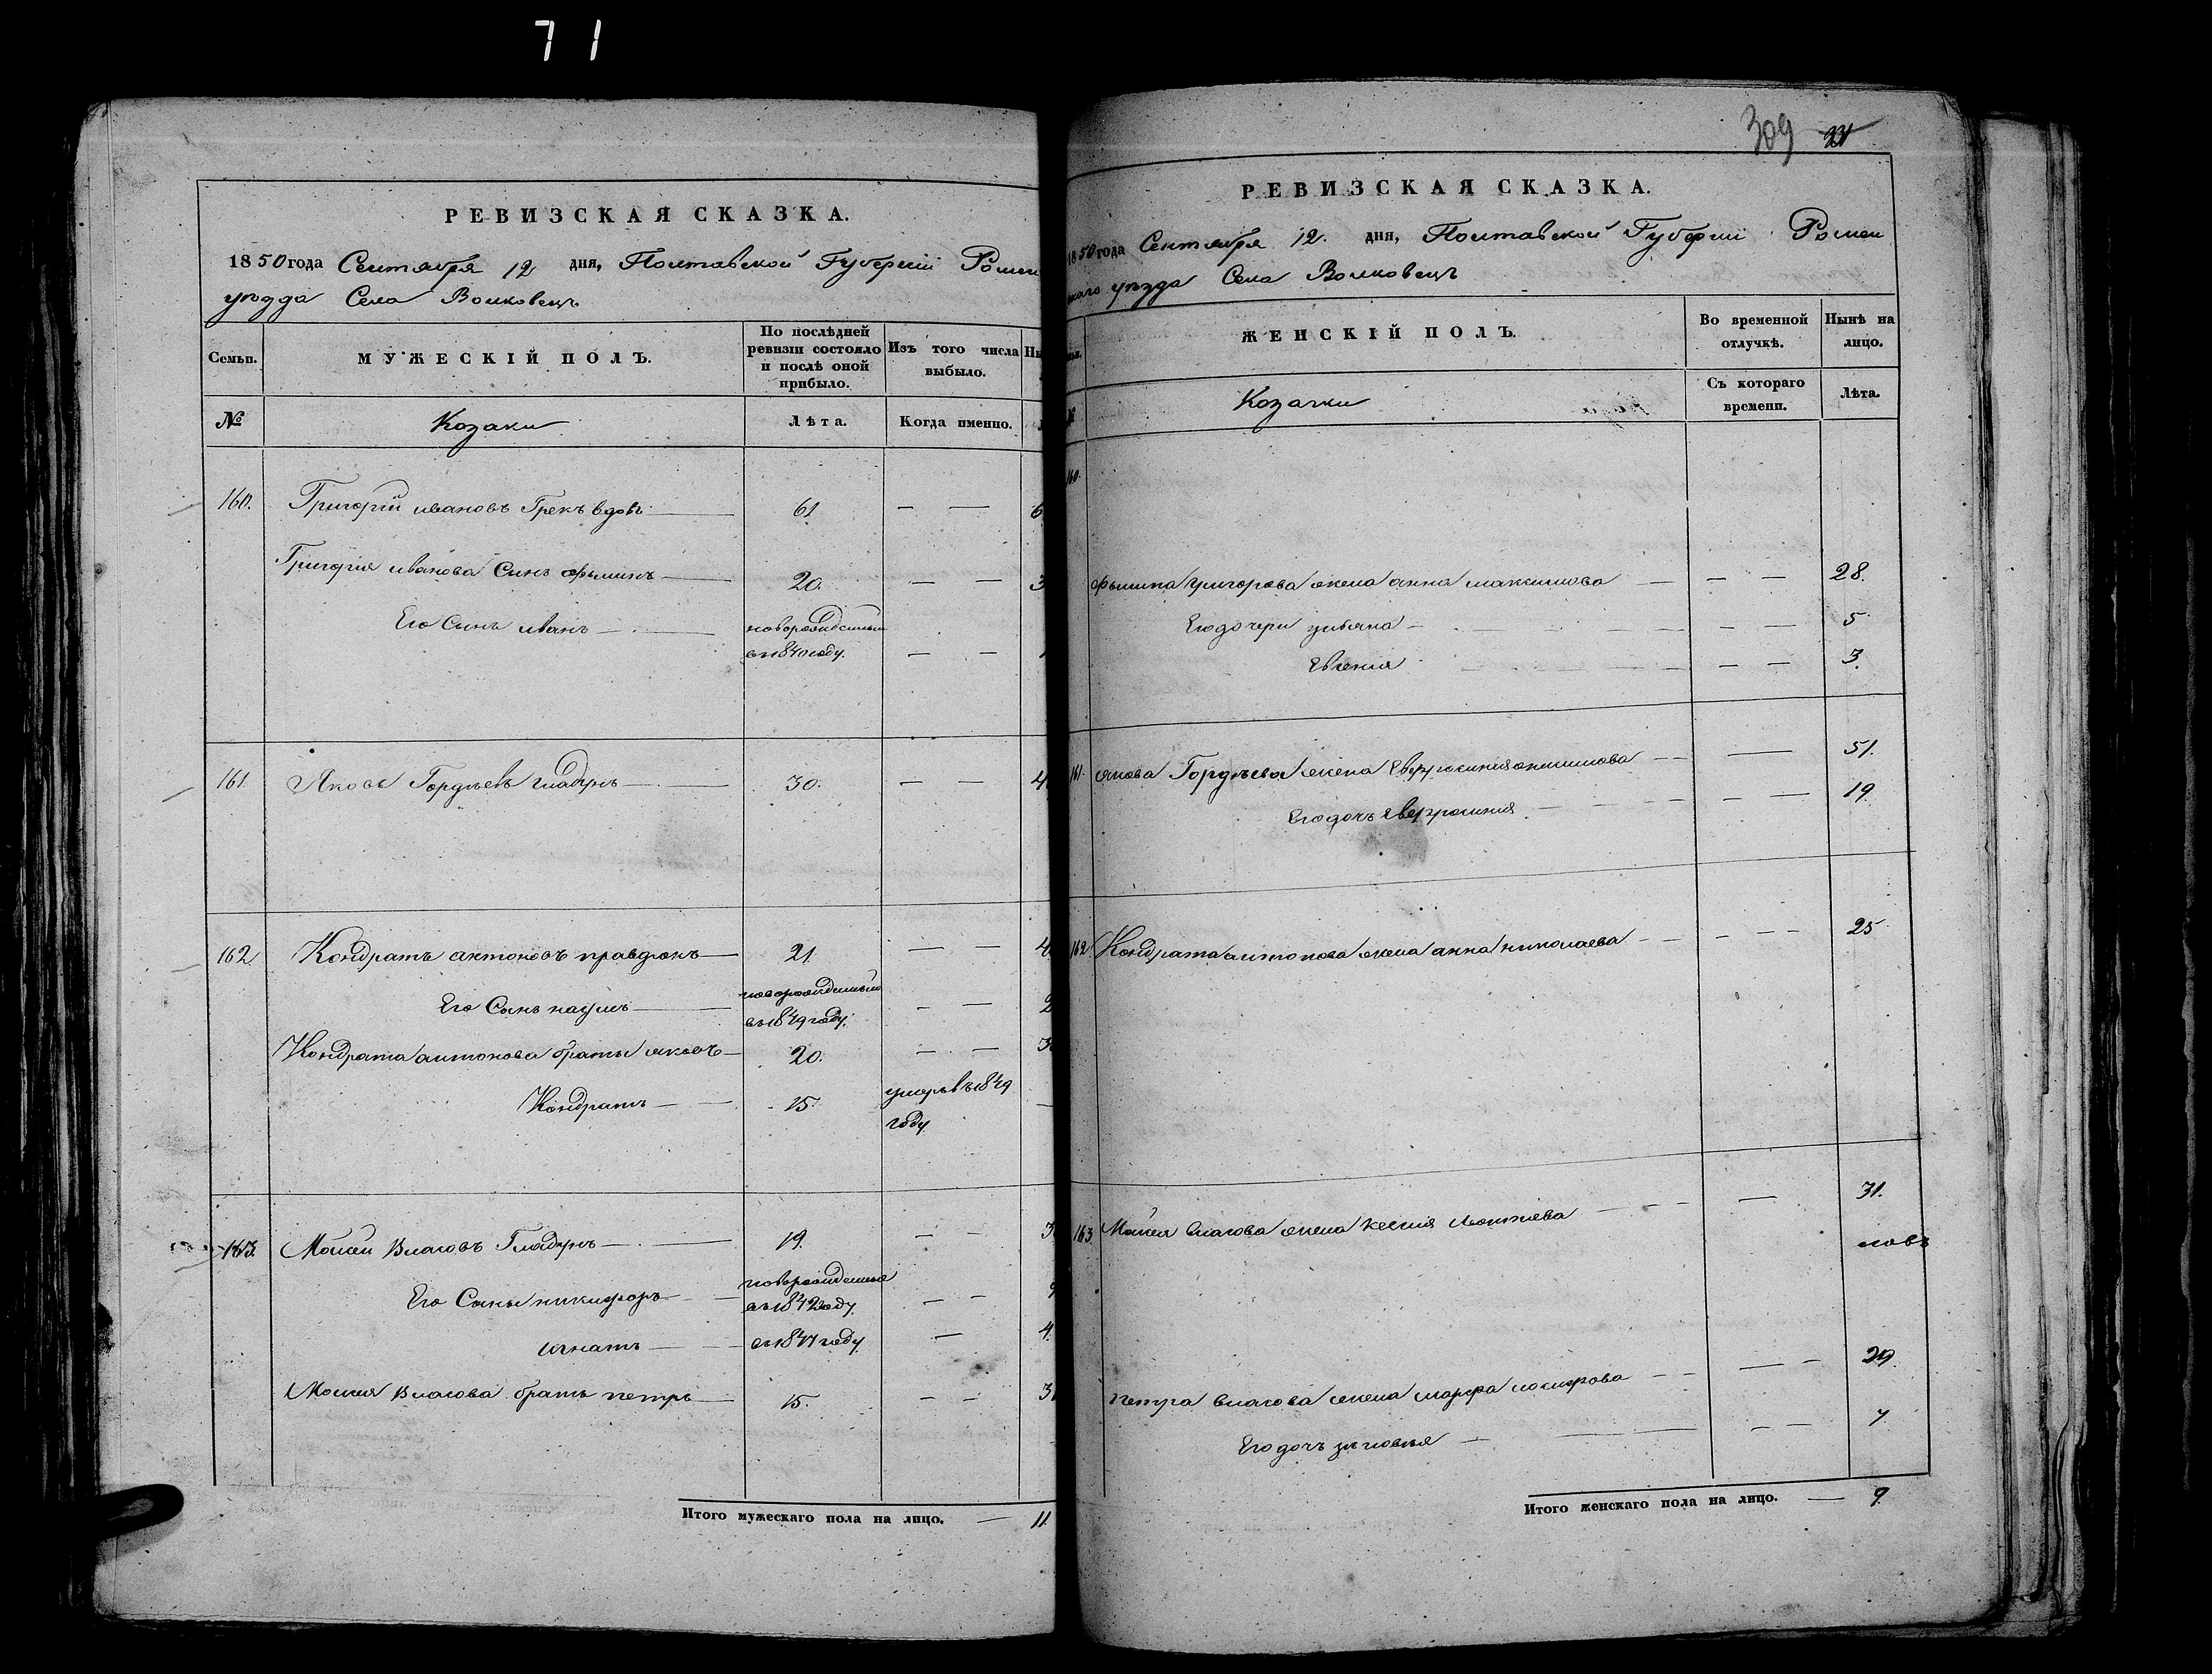 71
РЕВИЗСКАЯ СКАЗКА.
1850 года Сентября 12 дня, Полтавской Губерніи Ромен
уѣзда Села Волковецъ
Семьи.
МУЖЕСКІЙ ПОЛЪ.
По послѣдней
ревизіи состояло
и послѣ оной
прибыло.
Изъ того числа
выбыло.
№
Козаки
Лѣта.
Когда именно.
160. Григорій ивановъ Грекъ вдовъ 61 6
Григорія иванова Сынъ 20. 3
Его Сынъ иванъ новорожденный
въ 1840 году. 1
161 Яковъ Гордѣевъ гладырь 30. 4
162 Кондратъ антоновъ правдюкъ 21 4
Его Сынъ наумъ новорожденный
въ 1849 году. 2
Кондрата антонова братья яковъ 20. 3
Кондратъ 15. умеръ въ 1849
году
163. Моисей Власовъ Гладырь 19. 3
Его Сыны никифоръ новорожденные
въ 1842 году 9
игнатъ въ 1847 году 4.
Моисея Власова братъ петръ 15. 3
Итого мужескаго пола на лицо. — 11
309 221
РЕВИЗСКАЯ СКАЗКА.
1850 года Сентября 12. дня, Полтавской Губерніи Ромен
скаго уѣзда Села Волковецъ
ЖЕНСКІЙ ПОЛЪ.
Во временной
отлучкѣ.
Нынѣ на
лицо.
№
Козачки
Съ котораго
времени.
Лѣта.
160.
григорова жена анна максимова 28.
Его дочери ульяна 5
Евгенія 3.
161. якова Гордѣева жена Евфросинія 51.
Его дочь Евфросинія 19.
162 Кондрата антонова жена анна николаева 25
163 Моисея власова жена Ксенія Леонтіева 31.
новъ
петра власова жена марфа 29.
Его дочь зиновія 7
Итого женскаго пола на лицо. — 9